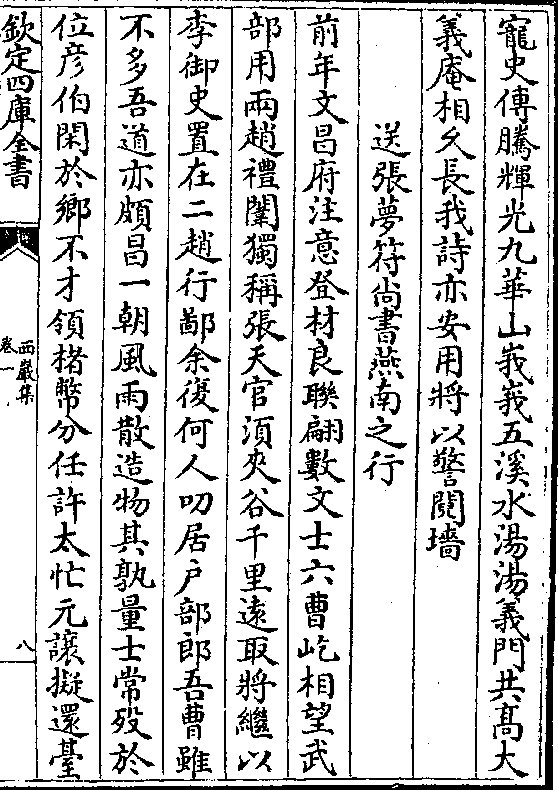 寵史傳騰輝光九華山峩峩五溪水湯湯義門共髙大
義庵相乆長我詩亦安用將以警䦧墻
送張夢符尚書燕南之行
前年文昌府注意登材良聯翩數文士六曹屹相望武
部用兩趙禮闈獨稱張天官須夾谷千里逺取將繼以
李御史置在二趙行鄙余復何人叨居户部郎吾曹雖
不多吾道亦頗昌一朝風雨散造物其孰量士常歿於
位彦伯閑於鄉不才領楮幣分任許太忙元讓擬還臺
欽定四庫全書
西巖集
卷一
八